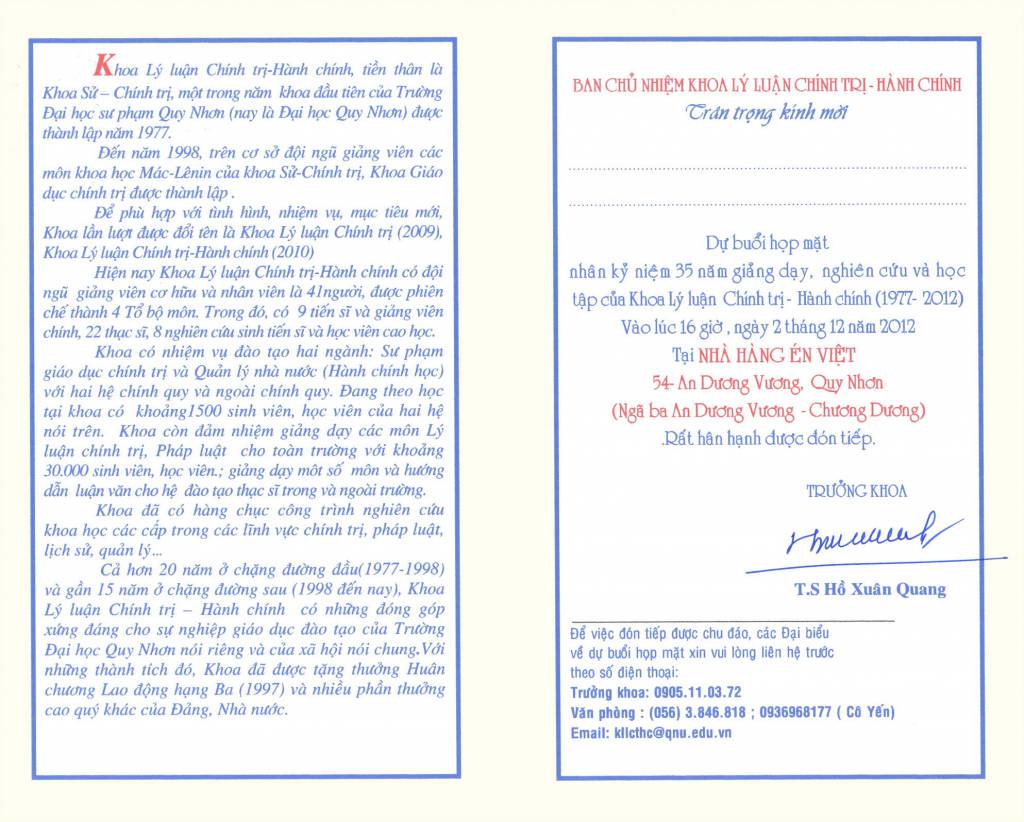 Khoa Lý luận Chính trị-Hành chính, tiền thân là
Khoa Sử – Chính trị, một trong năm khoa đầu tiên của Trường
Đại học sư phạm Quy Nhơn (nay là Đại học Quy Nhơn) được
thành lập năm 1977.
Đến năm 1998, trên cơ sở đội ngũ giảng viên các
môn khoa học Mác-Lênin của khoa Sử-Chính trị, Khoa Giáo
dục chính trị được thành lập .
Để phù hợp với tình hình, nhiệm vụ, mục tiêu mới,
Khoa lần lượt được đổi tên là Khoa Lý luận Chính trị (2009),
Khoa Lý luận Chính trị-Hành chính (2010)
Hiện nay Khoa Lý luận Chính trị-Hành chính có đội
ngũ giảng viên cơ hữu và nhân viên là 41người, được phiên
chế thành 4 Tổ bộ môn. Trong đó, có 9 tiến sĩ và giảng viên
chính, 22 thạc sĩ, 8 nghiên cứu sinh tiến sĩ và học viên cao học.
Khoa có nhiệm vụ đào tạo hai ngành: Sư phạm
giáo dục chính trị và Quản lý nhà nước (Hành chính học)
với hai hệ chính quy và ngoài chính quy. Đang theo học
tại khoa có khoảng1500 sinh viên, học viên của hai hệ
nói trên. Khoa còn đảm nhiệm giảng dạy các môn Lý
luận chính trị, Pháp luật cho toàn trường với khoảng
30.000 sinh viên, học viên.; giảng dạy môt số môn và hướng
dẫn luận văn cho hệ đào tạo thạc sĩ trong và ngoài trường.
Khoa đã có hàng chục công trình nghiên cứu
khoa học các cấp trong các lĩnh vực chính trị, pháp luật,
lịch sử, quản lý...
Cả hơn 20 năm ở chặng đường đầu(1977-1998)
và gần 15 năm ở chặng đường sau (1998 đến nay), Khoa
Lý luận Chính trị – Hành chính có những đóng góp
xứng đáng cho sự nghiệp giáo dục đào tạo của Trường
Đại học Quy Nhơn nói riêng và của xã hội nói chung.Với
những thành tích đó, Khoa đã được tặng thưởng Huân
chương Lao động hạng Ba (1997) và nhiều phần thưởng
cao quý khác của Đảng, Nhà nước.
BAN CHỦ NHIỆM KHOA LÝ LUẬN CHÍNH TRỊ - HÀNH CHÍNH
Trân trọng kính mời
Dự buổi họp mặt
nhân kỷ niệm 35 năm giảng dạy, nghiên cứu và học
tập của Khoa Lý luận Chính trị - Hành chính (1977- 2012)
Vào lúc 16 giờ , ngày 2 tháng 12 năm 2012
Tại NHÀ HÀNG ÉN VIỆT
54- An Dương Vương, Quy Nhơn
(Ngã ba An Dương Vương - Chương Dương)
.Rất hân hạnh được đón tiếp.
TRƯỞNG KHOA
T.S Hồ Xuân Quang
Để việc đón tiếp được chu đáo, các Đại biểu
về dự buổi họp mặt xin vui lòng liên hệ trước
theo số điện thoại:
Trưởng khoa: 0905.11.03.72
Văn phòng : (056) 3.846.818 ; 0936968177 ( Cô Yến)
Email: kllcthc@qnu.edu.vn